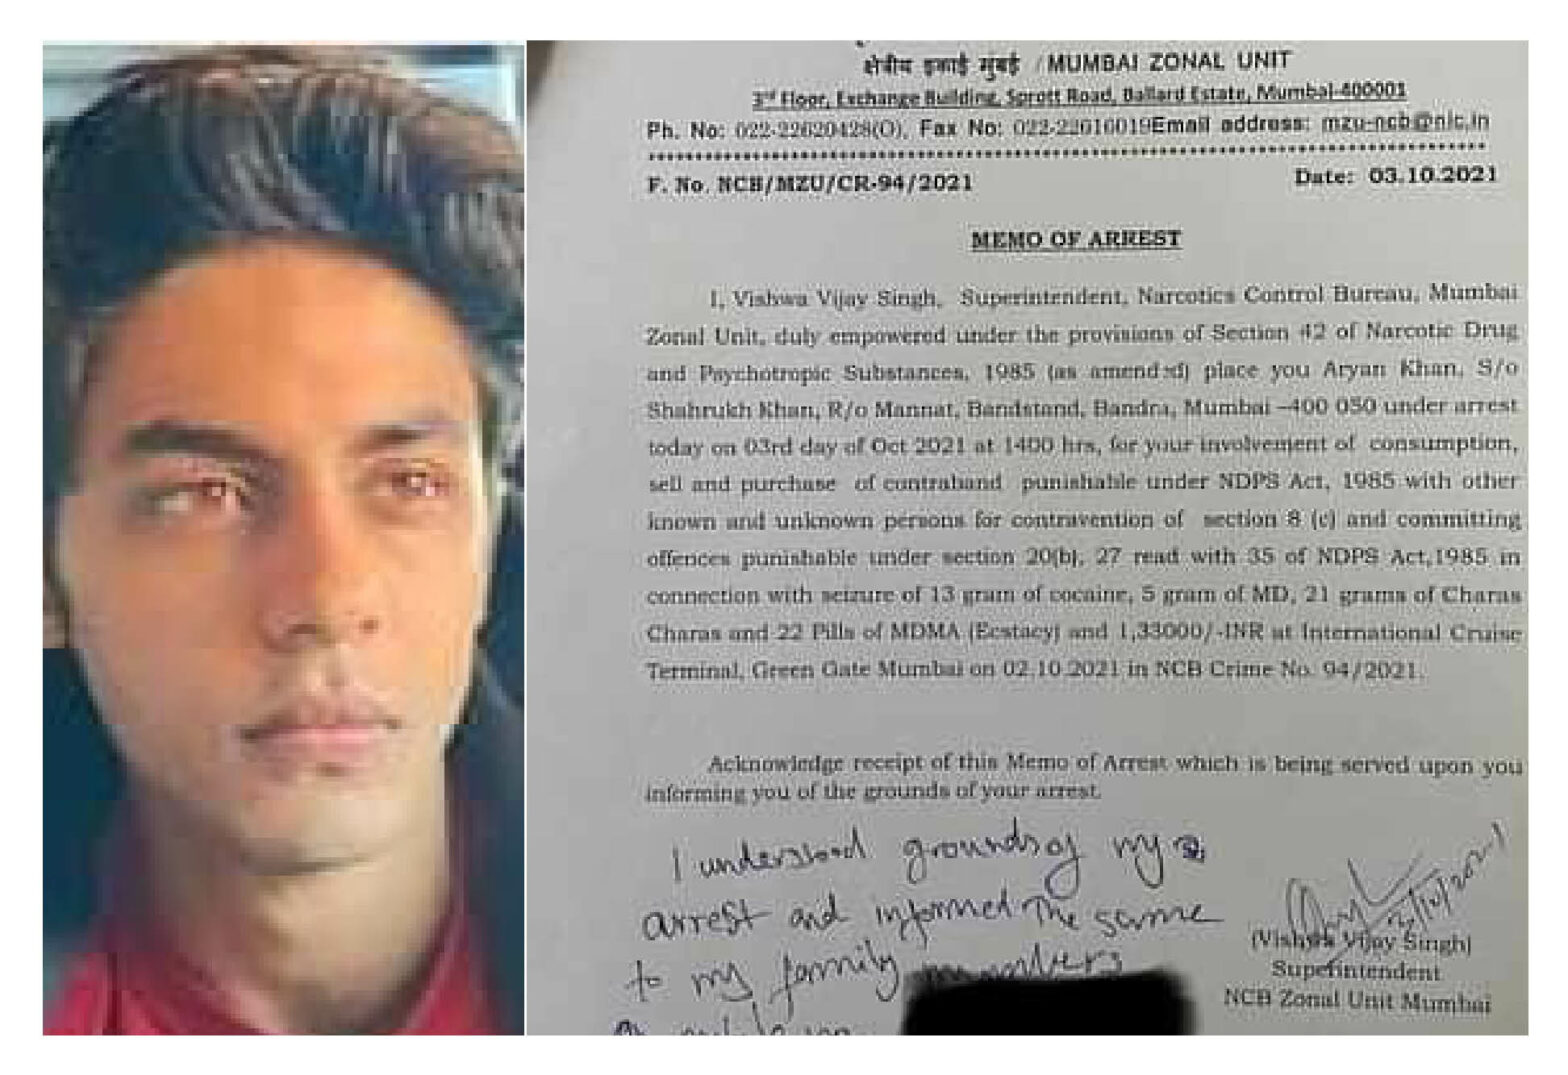 क्षेत्रीय इकाई मुंबई / MUMBAI ZONAL UNIT
3rd Floor, Exchange Building, Sprott Road, Ballard Estate, Mumbai-400001
Ph. No: 022-22620428(O), Fax No: 022-22610019Email address: mzu-ncb@nic.in
F. No. NCB/MZU/CR-94/2021
Date: 03.10.2021
MEMO OF ARREST
I, Vishwa Vijay Singh, Superintendent, Narcotics Control Bureau, Mumbai
Zonal Unit, duly empowered under the provisions of Section 42 of Narcotic Drug
and Psychotropic Substances, 1985 (as amended) place you Aryan Khan, S/o
Shahrukh Khan, R/o Mannat, Bandstand, Bandra, Mumbai -400 050 under arrest
today on 03rd day of Oct 2021 at 1400 hrs, for your involvement of consumption,
sell and purchase of contraband punishable under NDPS Act, 1985 with other
known and unknown persons for contravention of section 8 (c) and committing
offences punishable under section 20(b), 27 read with 35 of NDPS Act,1985 in
connection with seizure of 13 gram of cocaine, 5 gram of MD, 21 grams of Charas
Charas and 22 Pills of MDMA (Ecstacy) and 1,33000/-INR at International Cruise
Terminal, Green Gate Mumbai on 02.10.2021 in NCB Crime No. 94/2021.
Acknowledge receipt of this Memo of Arrest which is being served upon you
informing you of the grounds of your arrest.
I understood grounds of my
arrest and informed the same
to my family members
(Vishwa Vijay Singh)
Superintendent
NCB Zonal Unit Mumbai